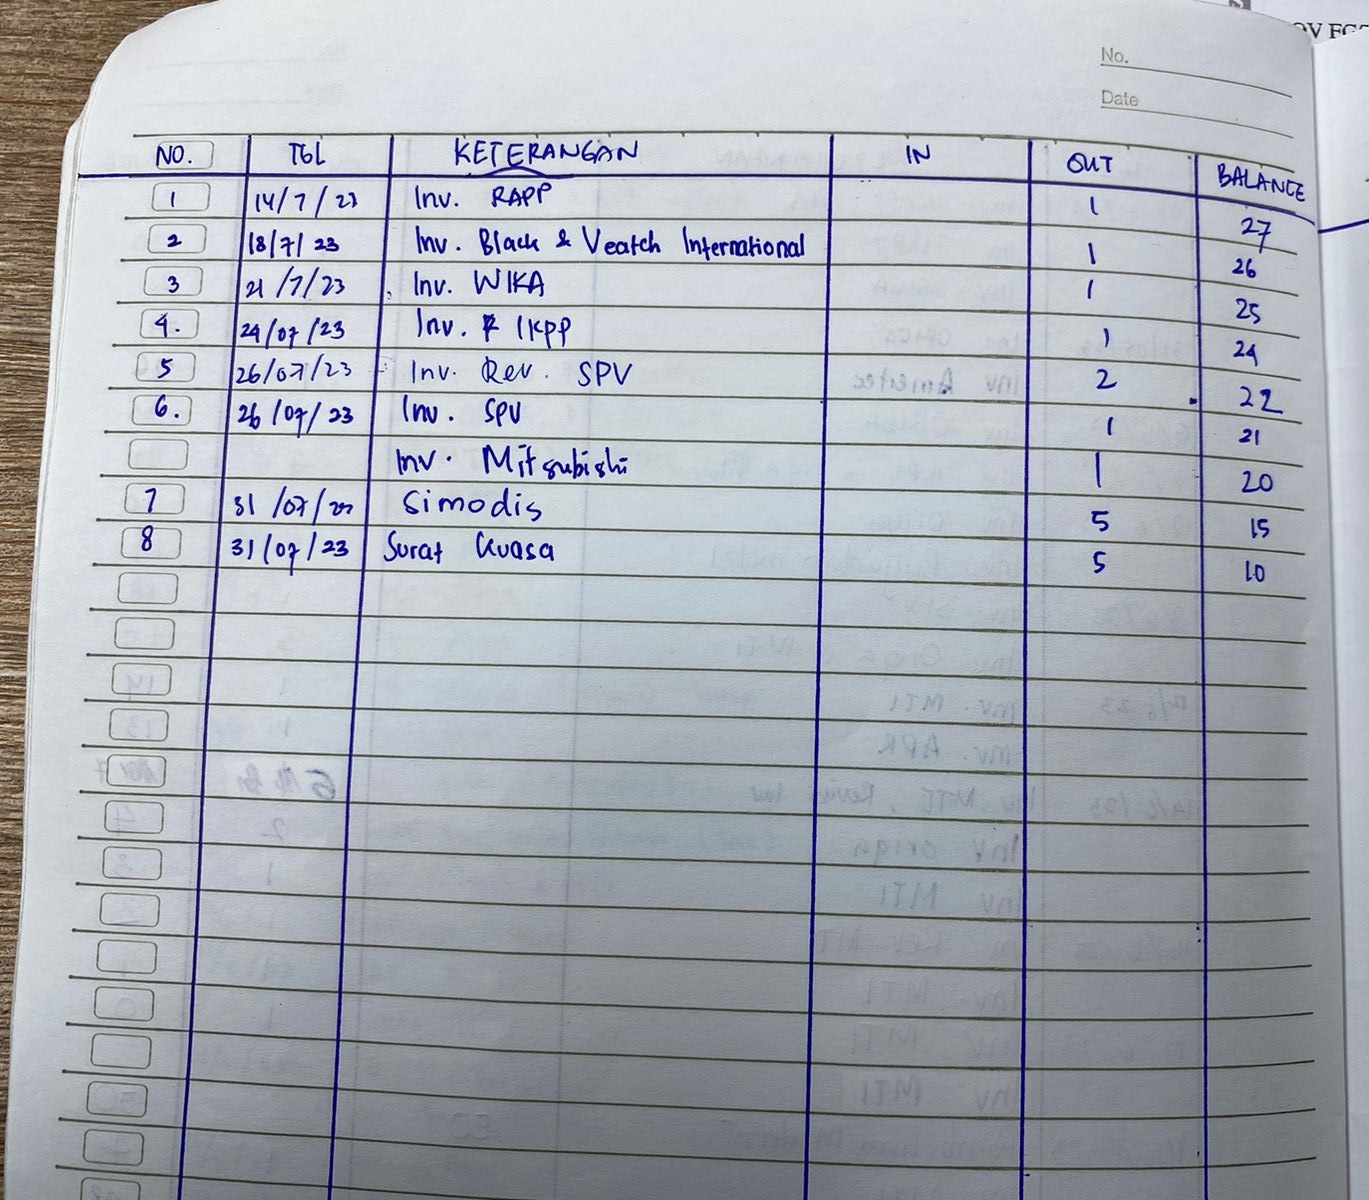 No.
Date
NO. TGL KETERANGAN IN OUT BALANCE
1 14/7/23 Inv. RAPP 1 27
2 18/7/23 Inv. Black & Veatch International 1 26
3 21/7/23 Inv. WIKA 1 25
4. 24/07/23 Inv. IKPP 1 24
5 26/07/23 Inv. Rev. SPV 2 22
6. 26/07/23 Inv. SPV 1 21
Inv. Mitsubishi 1 20
7 31/07/ Simodis 5 15
8 31/07/23 Surat Kuasa 5 10